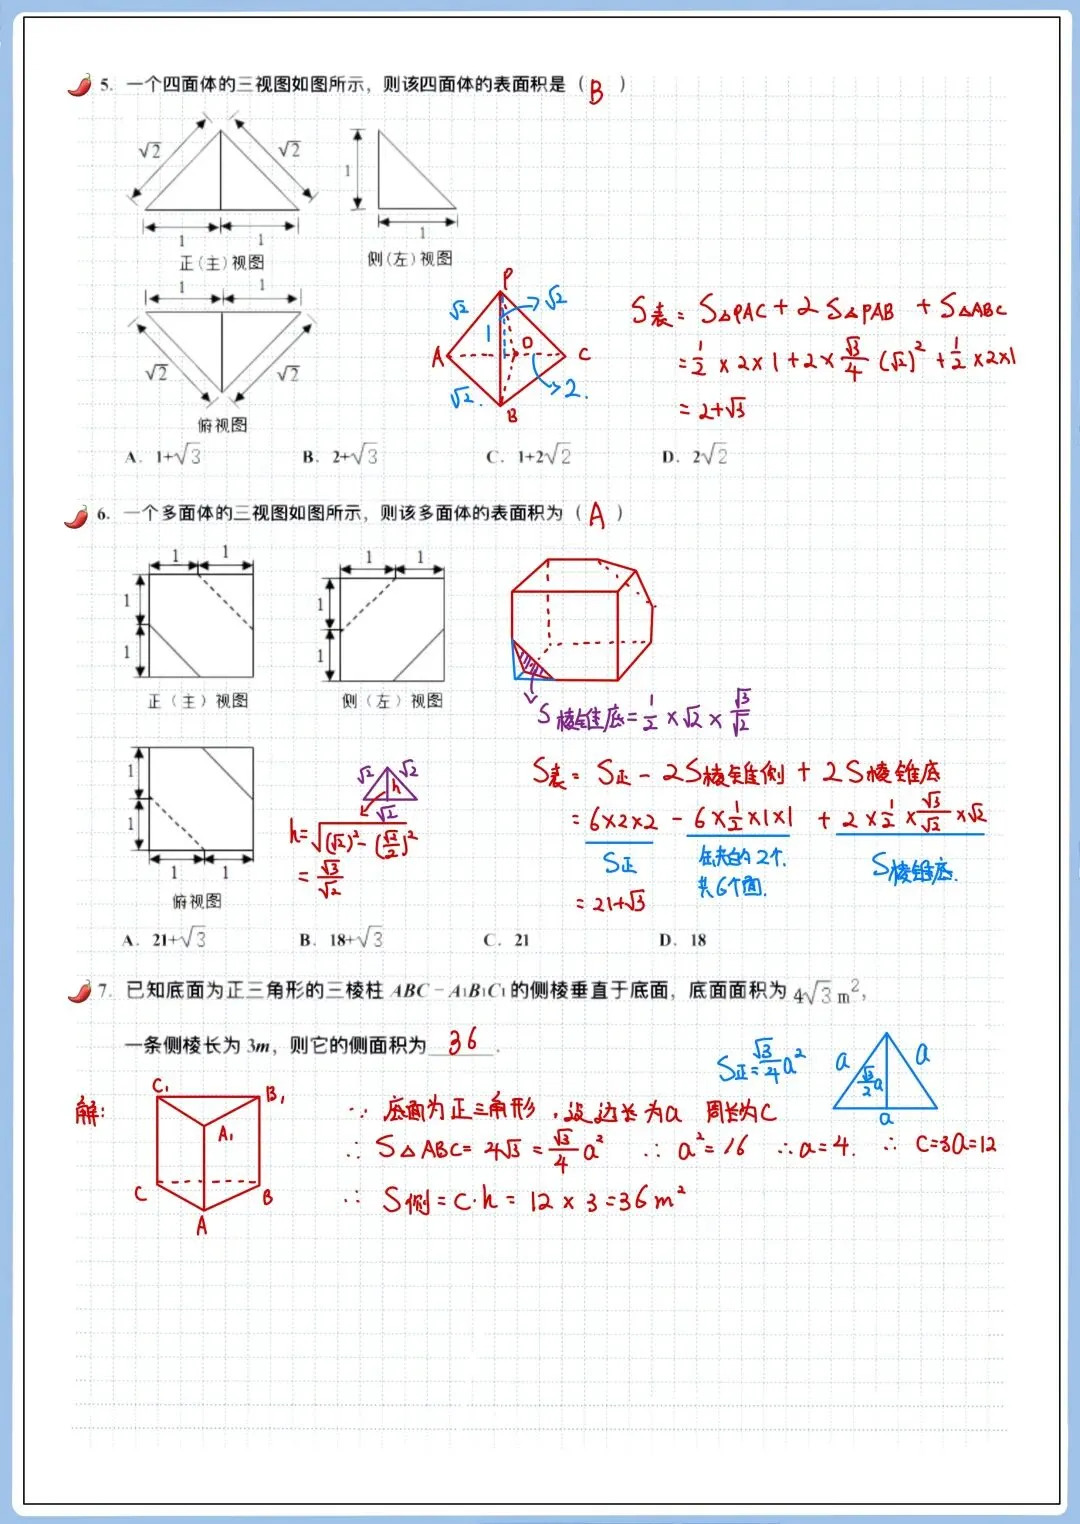 5. 一个四面体的三视图如图所示，则该四面体的表面积是（ B ）
√2 √2
1
1 1
1
正（主）视图 侧（左）视图
1 1
√2 √2
俯视图
P
√2 √2
1
A O C
√2. 2.
B
S表 = S△PAC + 2 S△PAB + S△ABC
= 1/2 × 2×1 + 2× √3/4 (√2)² + 1/2 ×2×1
= 2+√3
A. 1+√3 B. 2+√3 C. 1+2√2 D. 2√2
6. 一个多面体的三视图如图所示，则该多面体的表面积为（ A ）
1 1 1 1
1 1
1 1
正（主）视图 侧（左）视图
S棱锥底 = 1/2 × √2 × √3/√2
1
1
1 1
俯视图
√2 √2
h
√2
h = √((√2)² - (√2/2)²)
= √3/√2
S表 = S正 - 2S棱锥侧 + 2S棱锥底
= 6×2×2 - 6×1/2×1×1 + 2×1/2×√3/√2×√2
S正 2个. S棱锥底.
共6个面.
= 21+√3
A. 21+√3 B. 18+√3 C. 21 D. 18
7. 已知底面为正三角形的三棱柱 ABC－A₁B₁C₁ 的侧棱垂直于底面，底面面积为 4√3 m²，
一条侧棱长为 3m，则它的侧面积为 36 .
S正 = √3/4 a²
a a
√3/2 a
a
解：
C₁ B₁
A₁
C B
A
∵ 底面为正三角形，设边长为a 周长为C
∴ S△ABC = 4√3 = √3/4 a² ∴ a² = 16 ∴ a = 4. ∴ C=3a=12
∴ S侧 = C·h = 12 × 3 = 36 m²